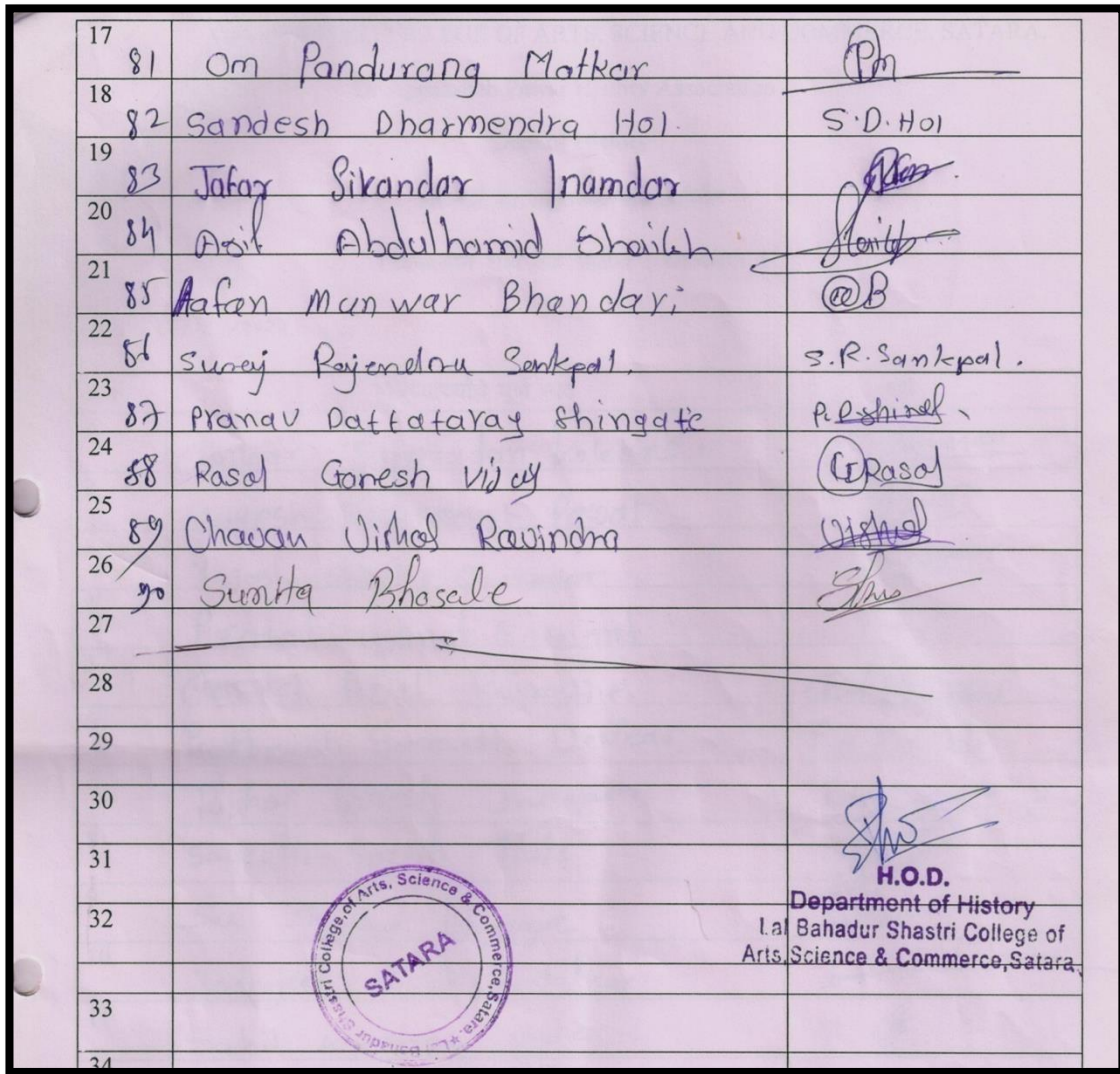 17
81 Om Pandurang Matkar Pm
18
82 Sandesh Dharmendra Hol. S.D.Hol
19
83 Jafar Sikandar Inamdar
20
84 Asif Abdulhamid Shaikh Shaikh
21
85 Aafan Munwar Bhandari B
22
86 Suraj Rajendra Sankpal. S.R.Sankpal.
23
87 Pranav Dattataray Shingate
24
88 Rasal Ganesh Vijay G Rasal
25
89 Chavan Vishal Ravindra Vishal
26
90 Sunita Bhosale
27
28
29
30
31
H.O.D.
32
Department of History
Lal Bahadur Shastri College of
Arts,Science & Commerce,Satara.
Lal Bahadur Shastri College,of Arts, Science & Commerce,Satara.*
SATARA
33
34